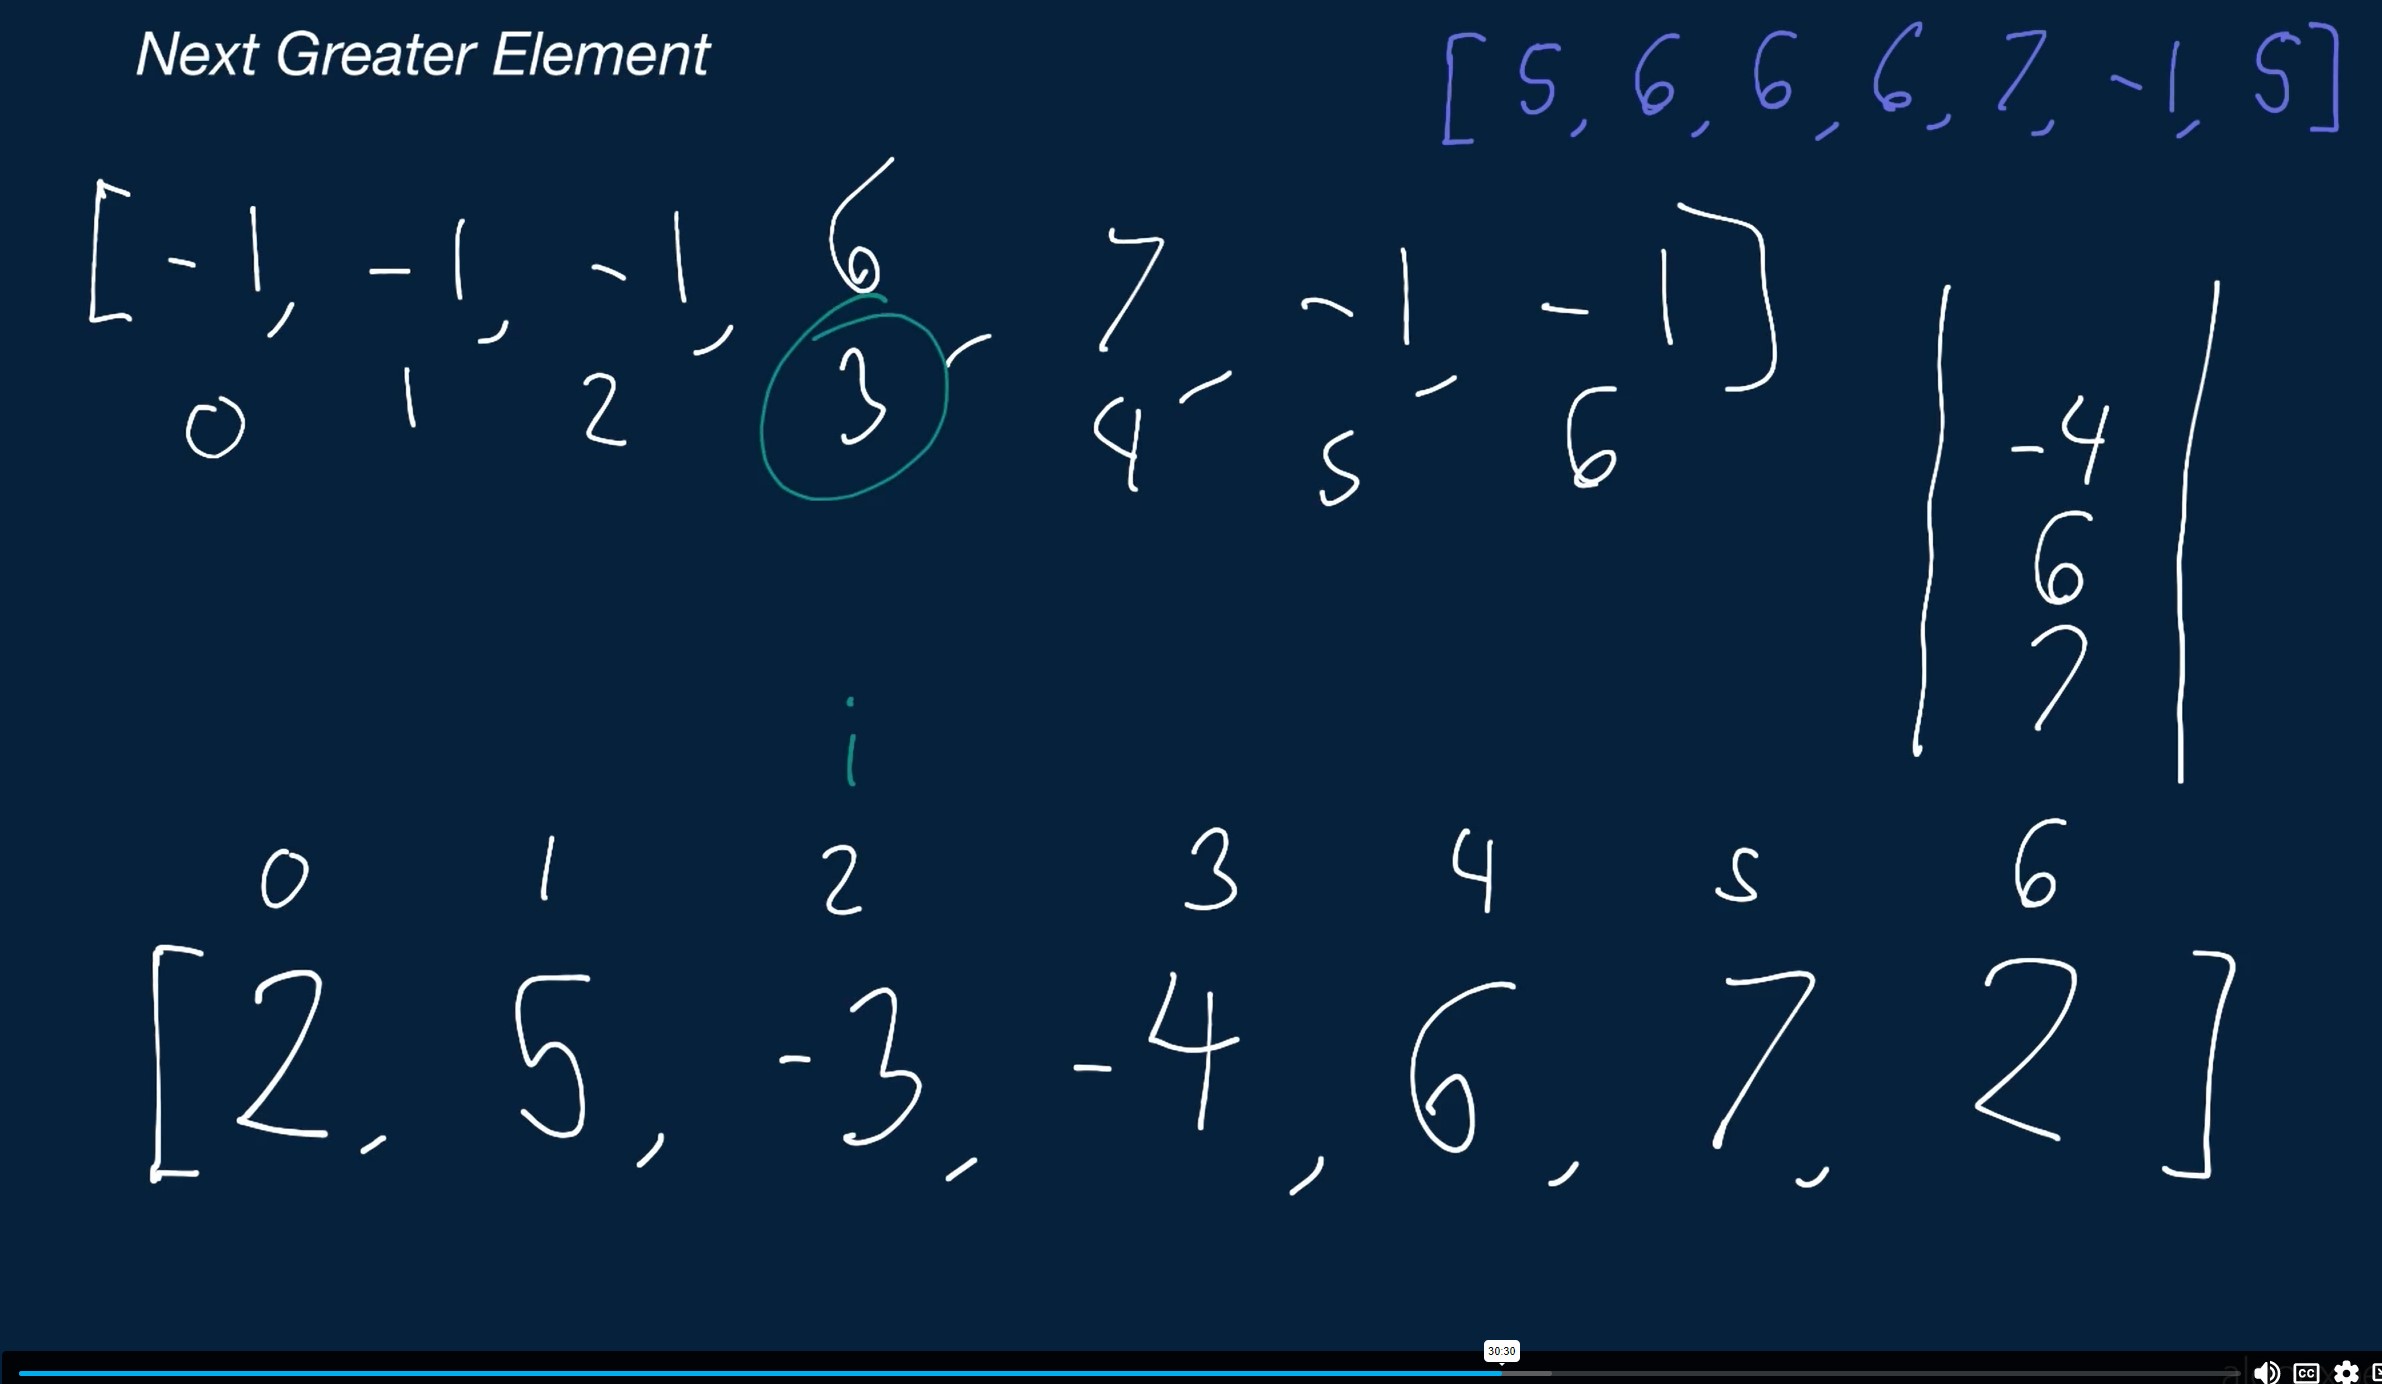 Next Greater Element
[5, 6, 6, 6, 7, -1, 5]
[-1, -1, -1, 6, 7, -1, -1]
0 1 2 3 4 5 6
-4
6
7
i
0 1 2 3 4 5 6
[2, 5, -3, -4, 6, 7, 2]
30:30
CC